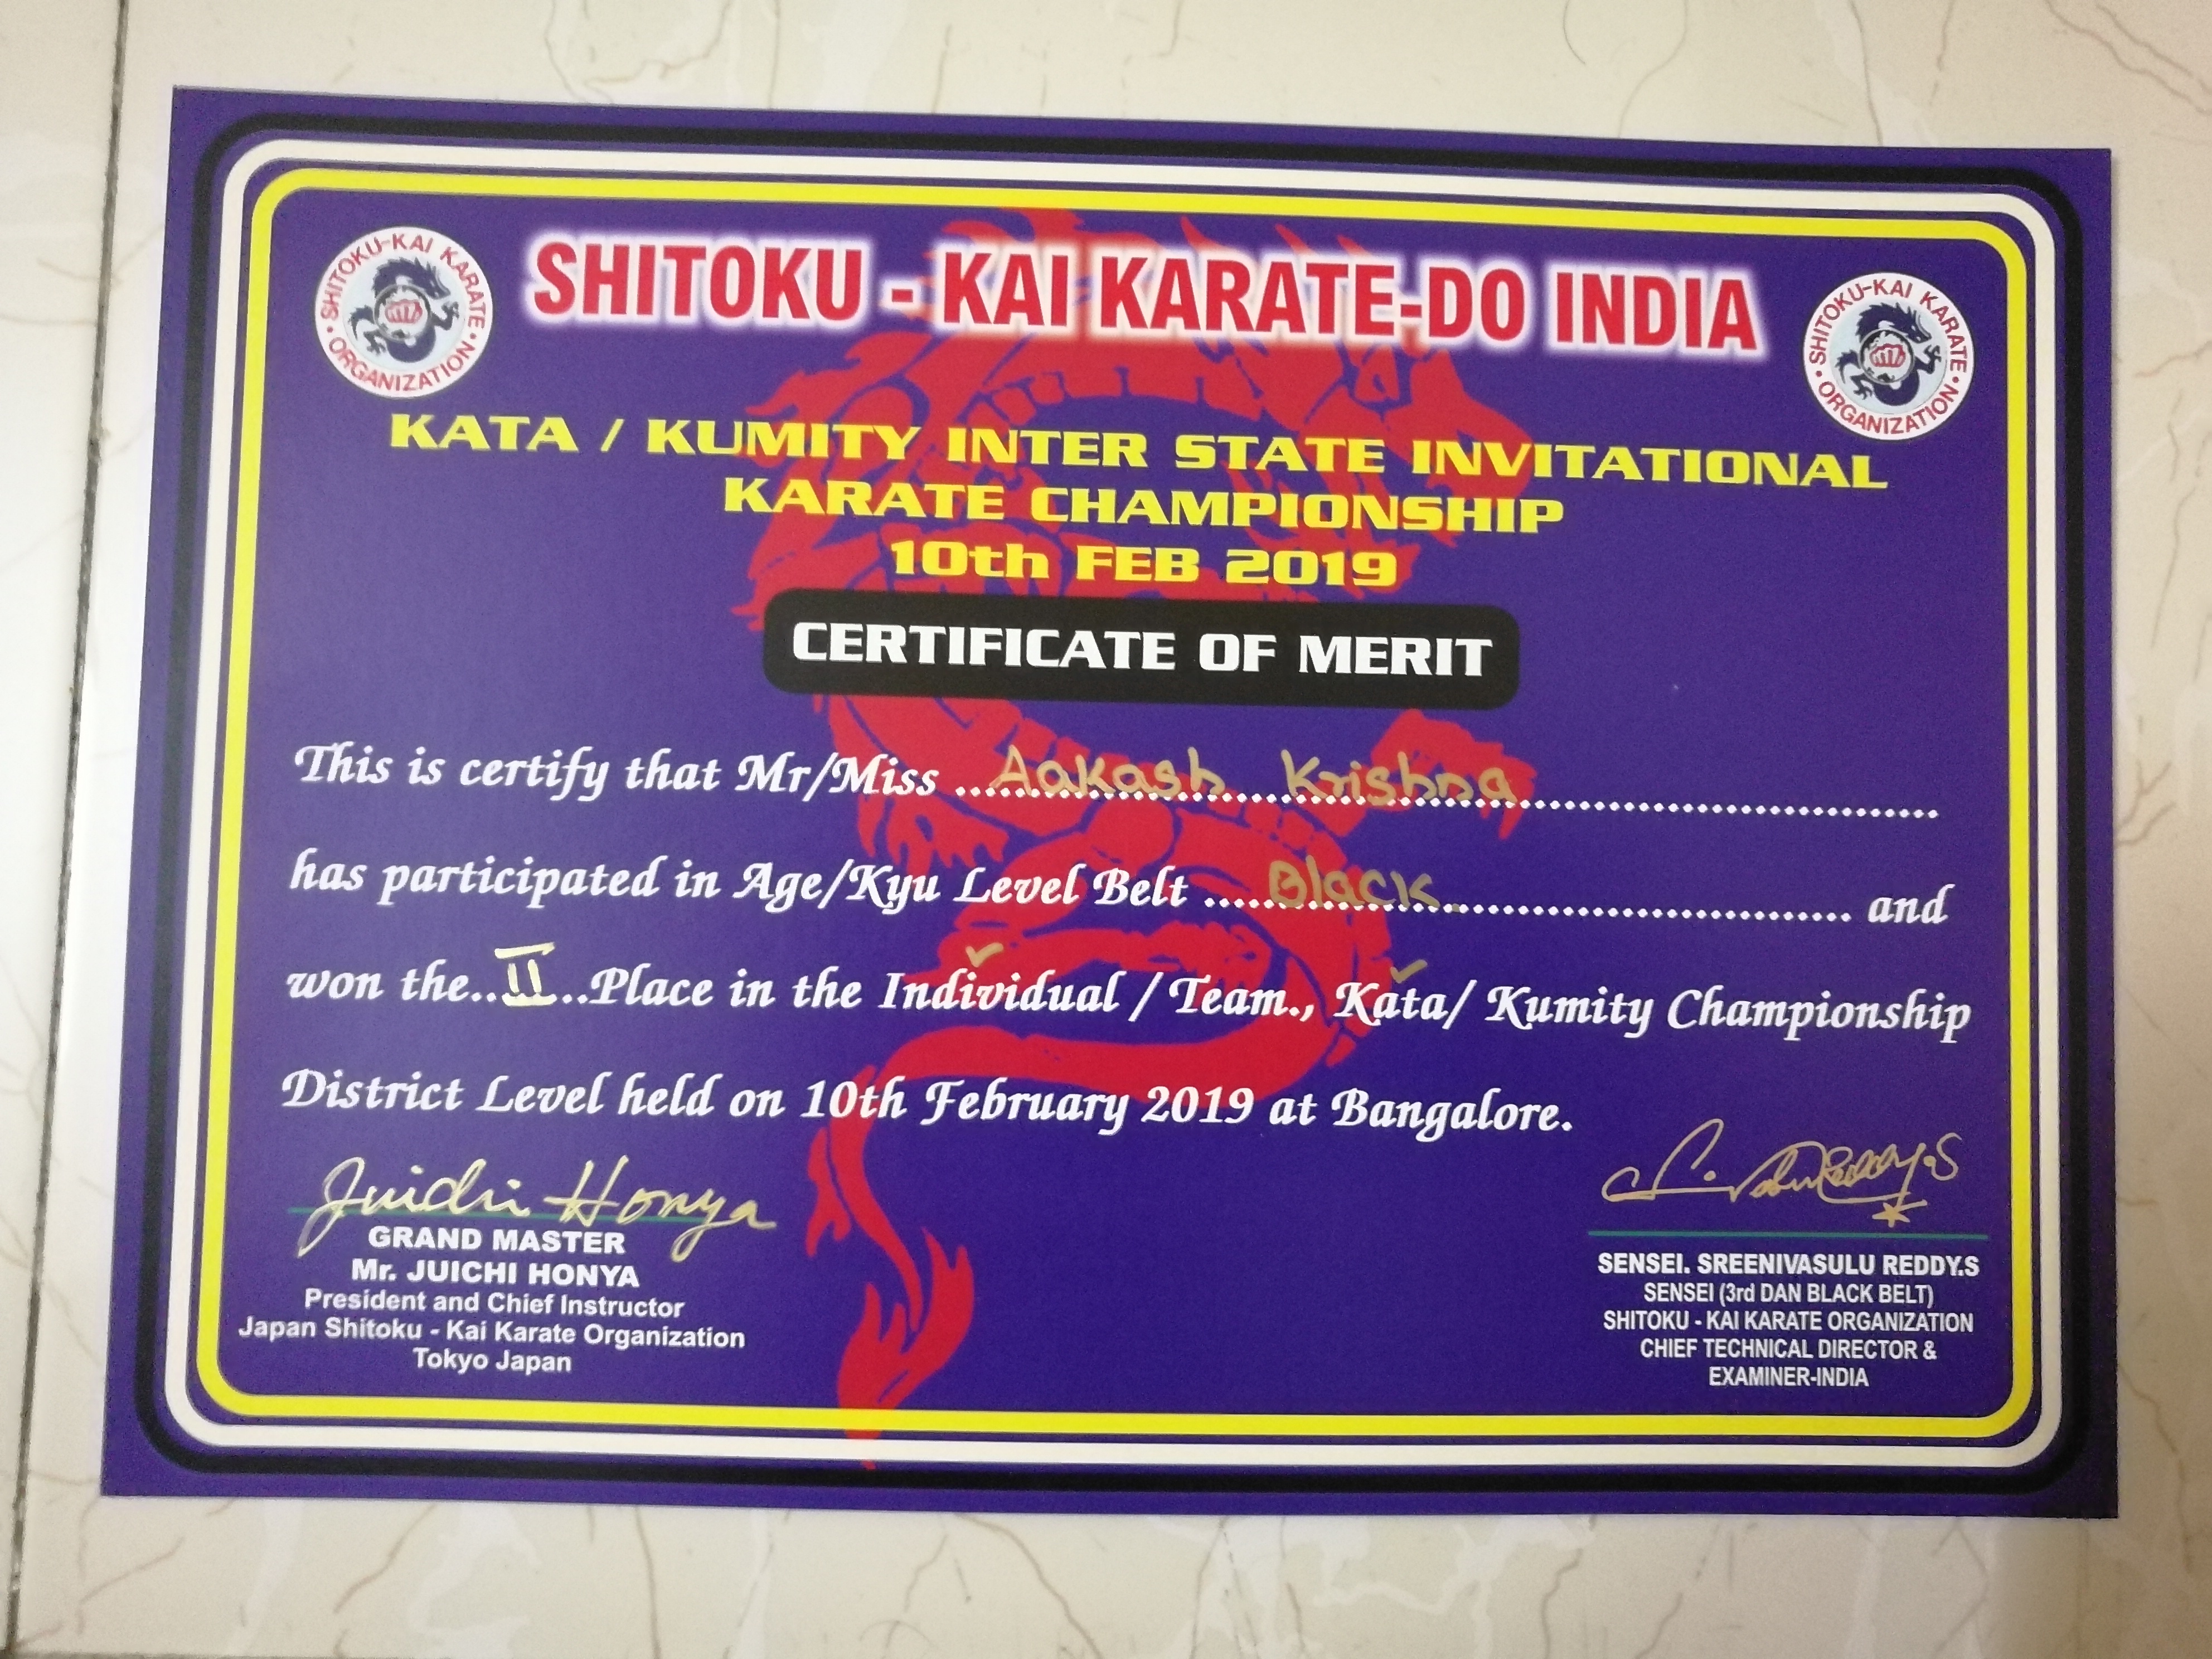 SHITOKU-KAI KARATE ORGANIZATION
SHITOKU - KAI KARATE-DO INDIA
SHITOKU-KAI KARATE ORGANIZATION
KATA / KUMITY INTER STATE INVITATIONAL
KARATE CHAMPIONSHIP
10th FEB 2019
CERTIFICATE OF MERIT
This is certify that Mr/Miss Aakash Krishna
has participated in Age/Kyu Level Belt Black. and
won the..II..Place in the Individual / Team., Kata/ Kumity Championship
District Level held on 10th February 2019 at Bangalore.
Juichi Honya
GRAND MASTER
Mr. JUICHI HONYA
President and Chief Instructor
Japan Shitoku - Kai Karate Organization
Tokyo Japan
SENSEI. SREENIVASULU REDDY.S
SENSEI (3rd DAN BLACK BELT)
SHITOKU - KAI KARATE ORGANIZATION
CHIEF TECHNICAL DIRECTOR &
EXAMINER-INDIA